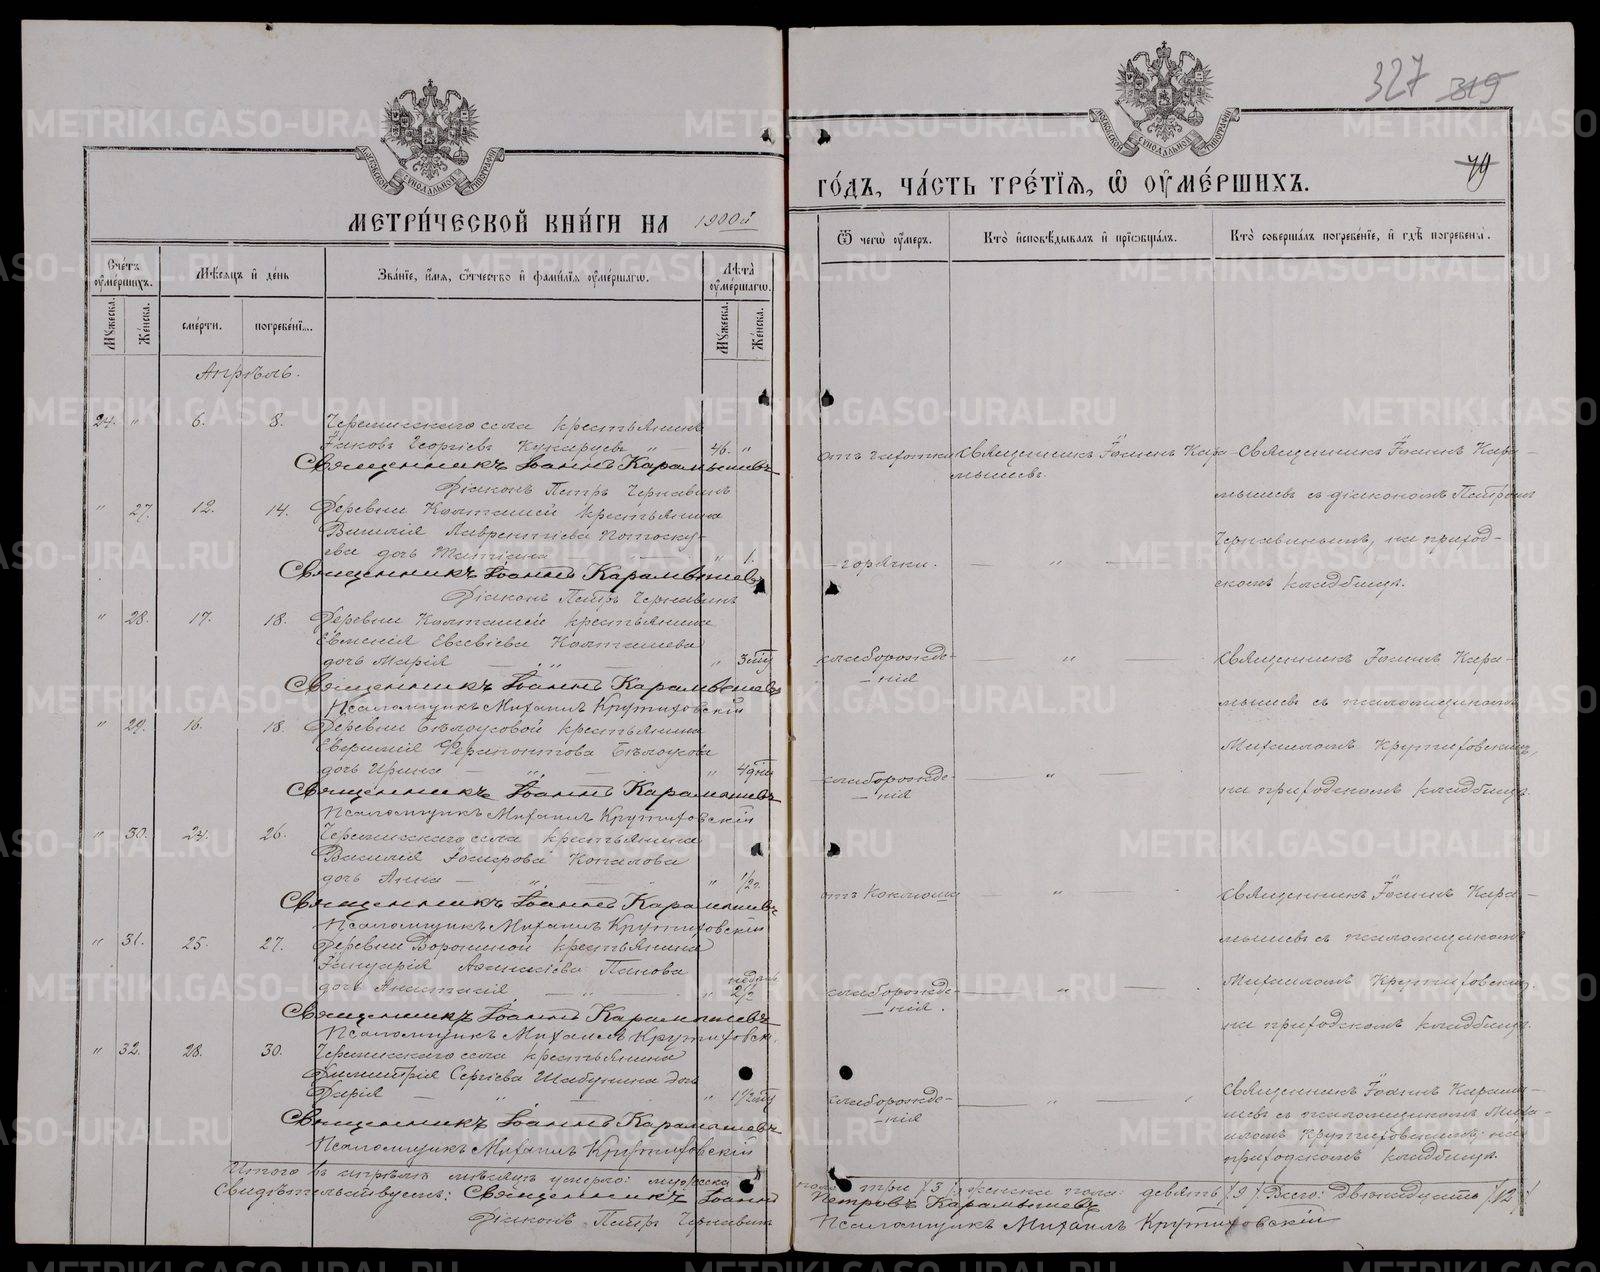 327 319
79
МЕТРИЧЕСКОЙ КНИГИ НА 1900й
ГОДЪ, ЧАСТЬ ТРЕТІЯ, Ѿ ОУМЕРШИХЪ.
Счетъ оумершихъ.
Мужеска.
Женска.
Мѣсяцъ и день
смерти.
погребені...
Званіе, имя, отчество и фамилія оумершагѡ.
Лѣта оумершагѡ.
Мужеска.
Женска.
Ѿ чегѡ оумеръ.
Кто исповѣдывалъ и пріобщалъ.
Кто совершалъ погребеніе, и гдѣ погребены.
Апрѣль.
24. " 6. 8. Черемисскаго села крестьянинъ
Іаковъ Георгіевъ " 46. "
Священникъ Іоаннъ Карамышевъ
Діаконъ Петръ Чернавинъ
отъ чахотки
Священникъ Іоаннъ Кара-
мышевъ.
Священникъ Іоаннъ Кара-
мышевъ съ діакономъ Петромъ
Чернавинымъ, на приход-
скомъ кладбищѣ.
" 27. 12. 14. Деревни Колташей крестьянина
Василія Лаврентіева Потоску-
ева дочь Татіана " 1.
Священникъ Іоаннъ Карамышевъ
Діаконъ Петръ Чернавинъ
— горячки. — " —
" 28. 17. 18. Деревни Колташей крестьянина
Евменія Евсевіева Колташева
дочь Марія — " — " 3
Священникъ Іоаннъ Карамышевъ
Псаломщикъ Михаилъ Крутиховскій
слаборожде-
—нія — " —
Священникъ Іоаннъ Кара-
мышевъ съ псаломщикомъ
Михаиломъ Крутиховскимъ,
на приходскомъ кладбищѣ.
" 29. 16. 18. Деревни Бѣлоусовой крестьянина
Евфимія Ферапонтова Бѣлоусова
дочь Ирина — " — " 4 дня
Священникъ Іоаннъ Карамышевъ
Псаломщикъ Михаилъ Крутиховскій
слаборожде-
—нія — " —
" 30. 24. 26. Черемисскаго села крестьянина
Василія Іосифова Копалова
дочь Анна — " — " 1/2г.
Священникъ Іоаннъ Карамышевъ
Псаломщикъ Михаилъ Крутиховскій
отъ Коклюша — " —
Священникъ Іоаннъ Кара-
мышевъ съ псаломщикомъ
Михаиломъ Крутиховским.
на приходскомъ кладбищѣ.
" 31. 25. 27. Деревни Ворониной крестьянина
Іануарія Аѳанасіева Панова
дочь Анастасія — " — " недѣль 2 1/2
Священникъ Іоаннъ Карамышевъ
Псаломщикъ Михаилъ Крутиховск.
слаборожде-
—нія. — " —
" 32. 28. 30. Черемисскаго села крестьянина
Димитрія Сергіева Шабунина дочь
Дарія — " — " 1 1/2
Священникъ Іоаннъ Карамышевъ
Псаломщикъ Михаилъ Крутиховскій
слаборожде-
—нія — " — "
Священникъ Іоаннъ Карамы-
шевъ съ псаломщикомъ Миха-
иломъ Крутиховскимъ на
приходскомъ кладбищѣ.
Итого въ апрѣлѣ мѣсяцѣ умерло: мужеска пола три /3/ женска пола: девять /9/ Всего: двѣнадцать /12/
Свидѣтельствуемъ: Священникъ Іоаннъ Петровъ Карамышевъ
Діаконъ Петръ Чернавинъ Псаломщикъ Михаилъ Крутиховскій
METRIKI.GASO-URAL.RU